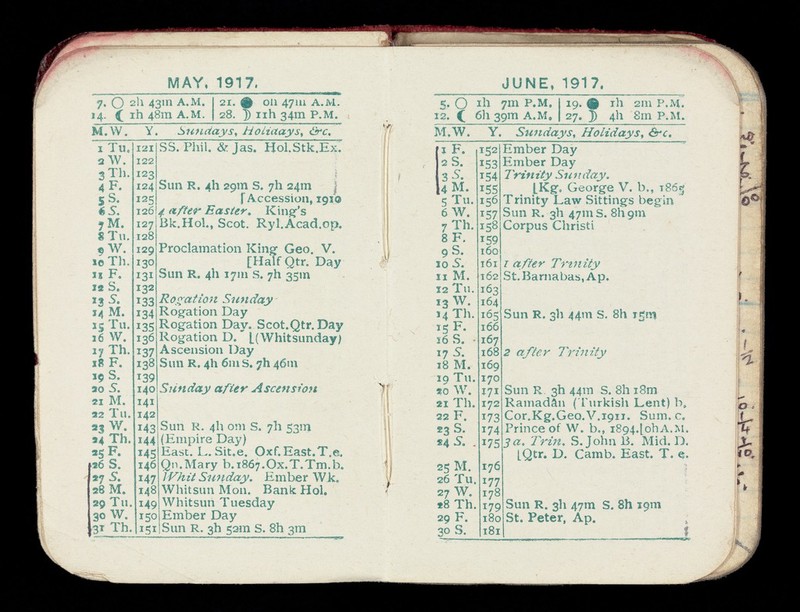 MAY, 1917.
7. ○ 2h 43m A.M. | 21. ● 0h 47m A.M.
14. ☾ 1h 48m A.M. | 28. ☽ 11h 34m P.M.
M. W. Y. Sundays, Holidays, &c.
1 Tu. 121 SS. Phil. & Jas. Hol.Stk.Ex.
2 W. 122
3 Th. 123
4 F. 124 Sun R. 4h 29m S. 7h 24m
5 S. 125 [Accession, 1910
6 S. 126 4 after Easter. King's
7 M. 127 Bk.Hol., Scot. Ryl.Acad.op.
8 Tu. 128
9 W. 129 Proclamation King Geo. V.
10 Th. 130 [Half Qtr. Day
11 F. 131 Sun R. 4h 17m S. 7h 35m
12 S. 132
13 S. 133 Rogation Sunday
14 M. 134 Rogation Day
15 Tu. 135 Rogation Day. Scot.Qtr.Day
16 W. 136 Rogation D. [(Whitsunday)
17 Th. 137 Ascension Day
18 F. 138 Sun R. 4h 6m S. 7h 46m
19 S. 139
20 S. 140 Sunday after Ascension
21 M. 141
22 Tu. 142
23 W. 143 Sun R. 4h 0m S. 7h 53m
24 Th. 144 (Empire Day)
25 F. 145 East. L. Sit.e. Oxf.East.T.e.
26 S. 146 Qn.Mary b.1867.Ox.T.Tm.b.
27 S. 147 Whit Sunday. Ember Wk.
28 M. 148 Whitsun Mon. Bank Hol.
29 Tu. 149 Whitsun Tuesday
30 W. 150 Ember Day
31 Th. 151 Sun R. 3h 52m S. 8h 3m
JUNE, 1917.
5. ○ 1h 7m P.M. | 19. ● 1h 2m P.M.
12. ☾ 6h 39m A.M. | 27. ☽ 4h 8m P.M.
M. W. Y. Sundays, Holidays, &c.
1 F. 152 Ember Day
2 S. 153 Ember Day
3 S. 154 Trinity Sunday.
4 M. 155 [Kg. George V. b., 1865
5 Tu. 156 Trinity Law Sittings begin
6 W. 157 Sun R. 3h 47m S. 8h 9m
7 Th. 158 Corpus Christi
8 F. 159
9 S. 160
10 S. 161 1 after Trinity
11 M. 162 St. Barnabas, Ap.
12 Tu. 163
13 W. 164
14 Th. 165 Sun R. 3h 44m S. 8h 15m
15 F. 166
16 S. 167
17 S. 168 2 after Trinity
18 M. 169
19 Tu. 170
20 W. 171 Sun R. 3h 44m S. 8h 18m
21 Th. 172 Ramadân (Turkish Lent) b.
22 F. 173 Cor.Kg.Geo.V.1911. Sum. c.
23 S. 174 Prince of W. b., 1894.[0h A.M.
24 S. 175 3 a. Trin. S. John B. Mid. D.
[Qtr. D. Camb. East. T. e.
25 M. 176
26 Tu. 177
27 W. 178
28 Th. 179 Sun R. 3h 47m S. 8h 19m
29 F. 180 St. Peter, Ap.
30 S. 181